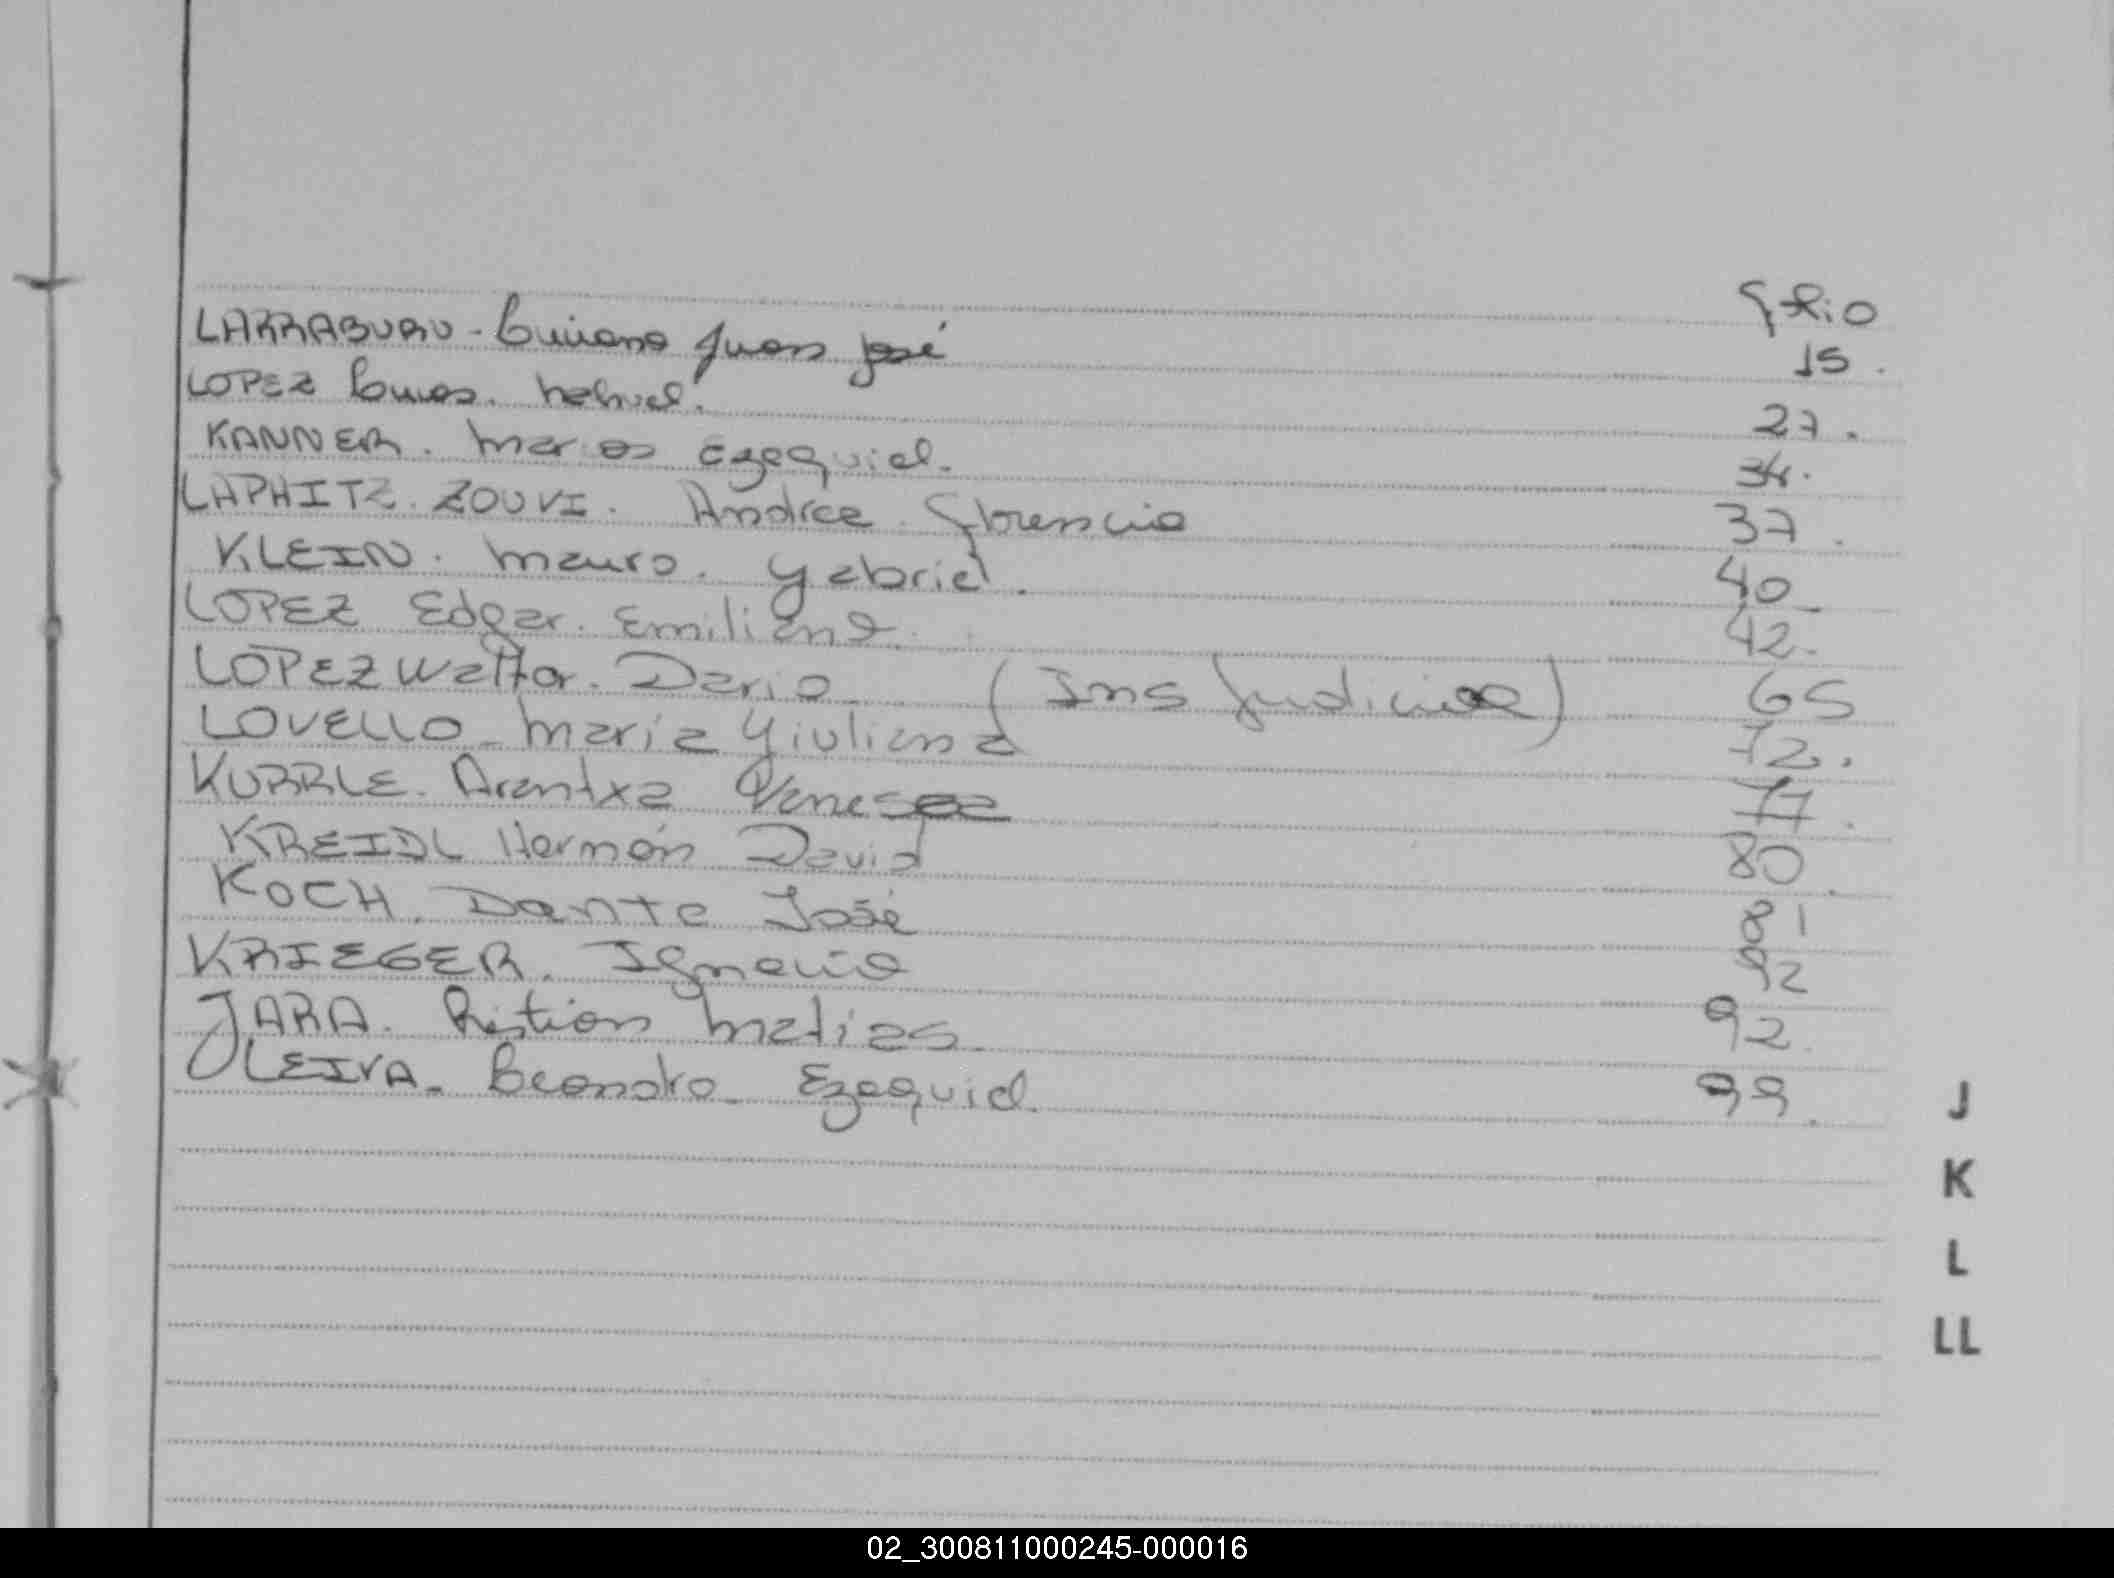 folio
LARRABURU - Luciano Juan José 15.
LOPEZ Lucas. Nahuel. 27.
KANNER. Marcos Ezequiel. 34.
LAPHITZ. ZOUVI. Andrea. Florencia 37.
KLEIN. Mauro. Gabriel. 40
LOPEZ Edgar. Emiliano. 42.
LOPEZ Walter. Dario (Ins Judicial) 65
LOVELLO - Maria Giuliana 72.
KURRLE. Arantxa Vanesa 77.
KREIDL Hernán David 80
KOCH. Dante José 81
KRIEGER. Ignacio 92
JARA. Matias 92
LEIVA. Leandro. Ezequiel. 99.
J
K
L
LL
02_300811000245-000016